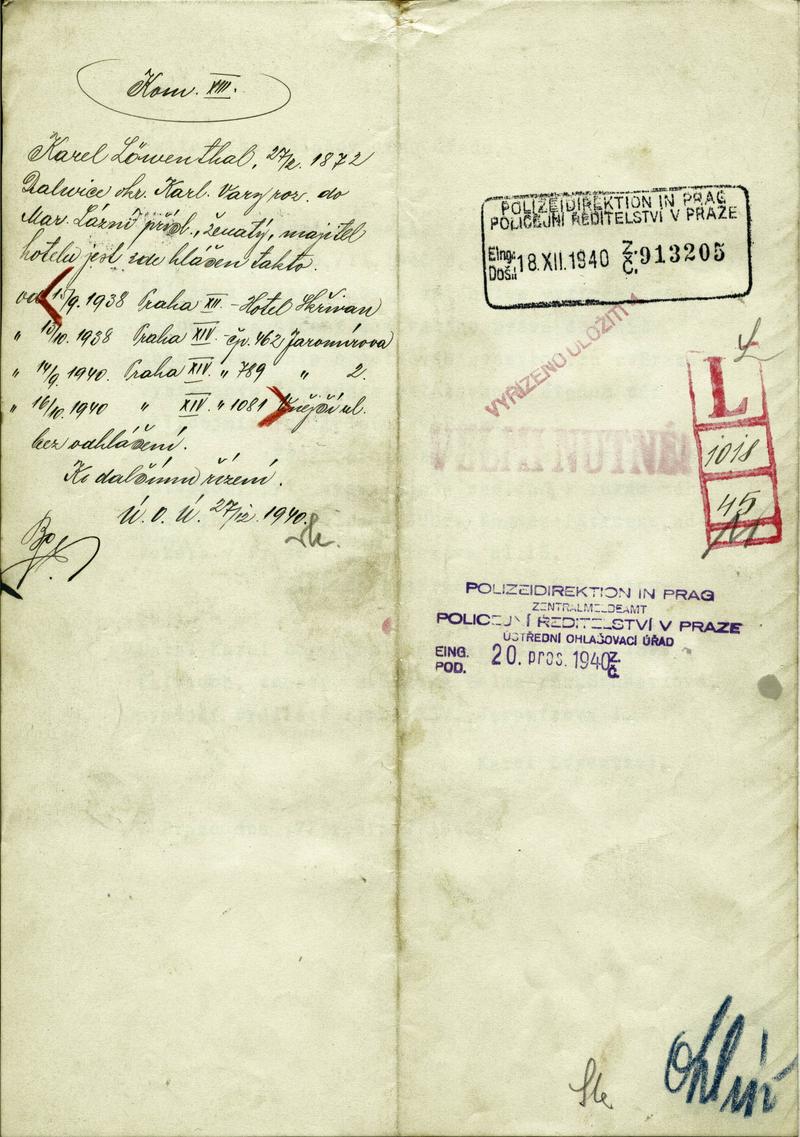 Kom. XIII.
Karel Löwenthal, 27/2. 1872
Dalwice okr. Karl. Vary roz. do
Mar. Lázní přísl., ženatý, majitel
hotelu jest zde hlášen takto.
od 15/9. 1938 Praha XII. - Hotel Skřivan
" 13/10. 1938 Praha XIV. - čp. 462 Jaromírova
" 14/9. 1940. Praha XIV. " 789 " 2.
" 16/10. 1940 " XIV. " 1081 Kněží ul.
bez odhlášení.
K dalšímu řízení.
Ú. O. Ú. 27/12. 1940.
POLIZEIDIREKTION IN PRAG
POLICEJNÍ ŘEDITELSTVÍ V PRAZE
Eing.:
Došl.: 18. XII. 1940 Z. Č. 913205
VYŘÍZENO ULOŽITI
VELMI NUTNÉ
L
1018
45
POLIZEIDIREKTION IN PRAG
ZENTRALMELDEAMT
POLICEJNÍ ŘEDITELSTVÍ V PRAZE
ÚSTŘEDNÍ OHLAŠOVACÍ ÚŘAD
EING.
POD. 20. pros. 1940 Z. Č.